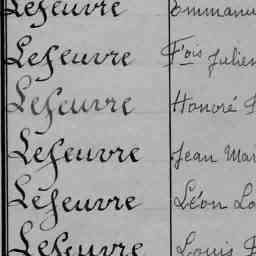 Lefeuvre
Lefeuvre Fois Julien
Lefeuvre Honoré
Lefeuvre Jean
Lefeuvre Léon
Lefeuvre Louis